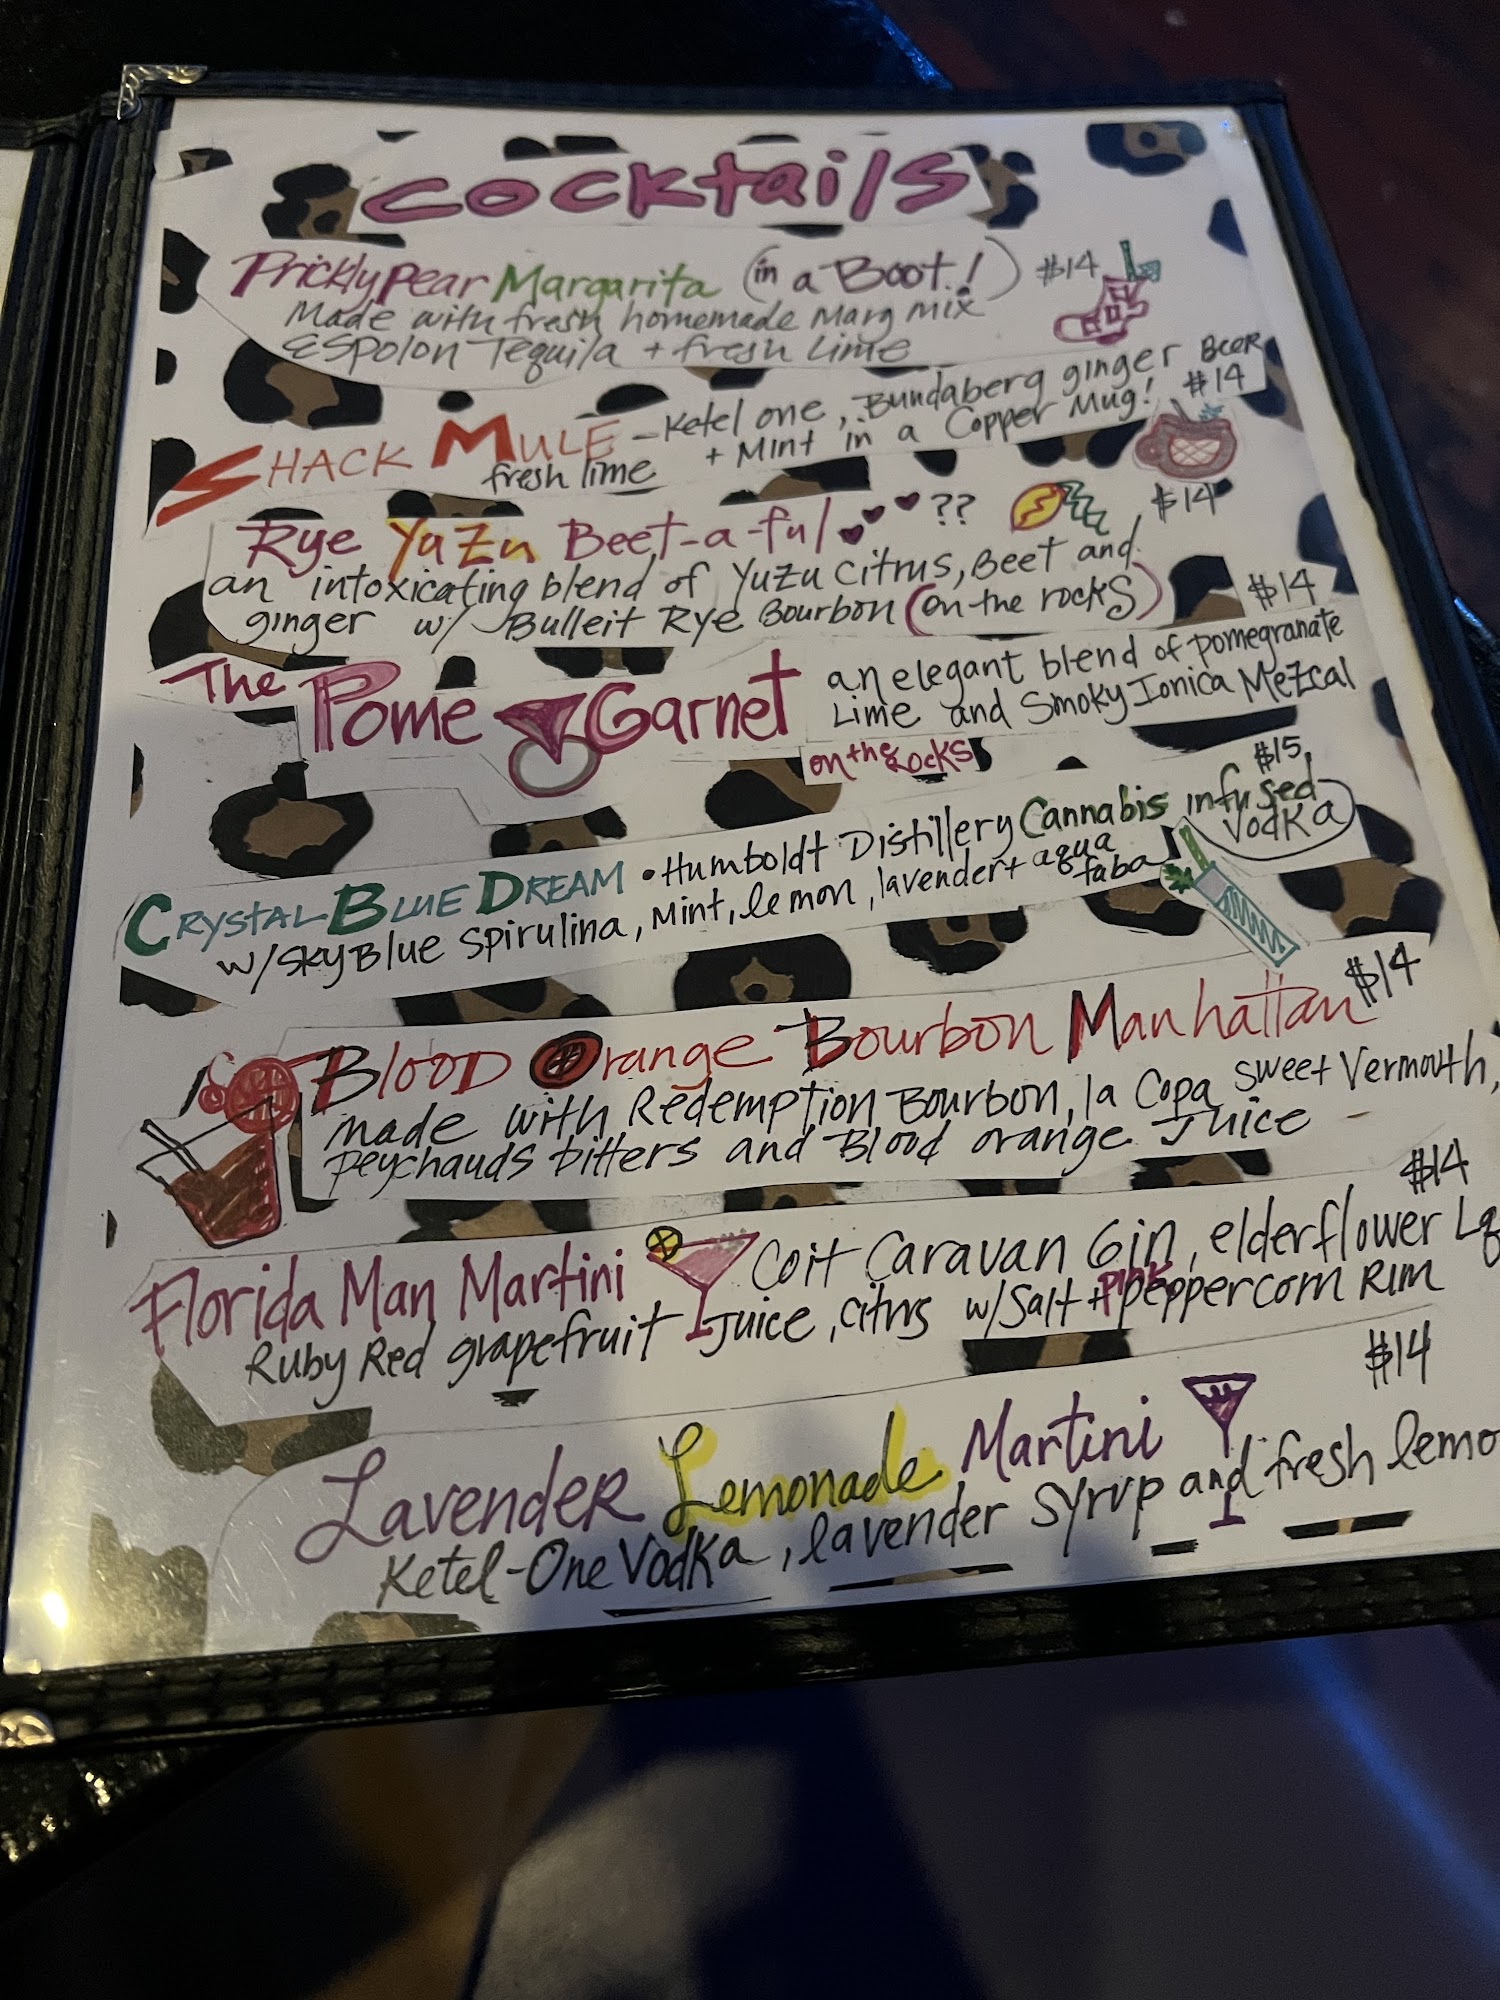 Cocktails
Prickly Pear Margarita (in a Boot!) $14
Made with fresh homemade Marg mix
ESPOLON Tequila + fresh Lime
SHACK MULE - Ketel one, Bundaberg ginger BEER
fresh lime + Mint in a Copper Mug! $14
Rye YuZu Beet-a-ful ?? $14
an intoxicating blend of YuZu Citrus, Beet and
ginger w/ Bulleit Rye Bourbon (on the rocks)
$14
The Pome Garnet an elegant blend of pomegranate
Lime and Smoky Ionica Mezcal
on the Rocks
$15
CRYSTAL BLUE DREAM • Humboldt Distillery Cannabis infused Vodka
w/ Sky Blue Spirulina, Mint, lemon, lavender + aqua faba
$14
Blood Orange Bourbon Manhattan
made with Redemption Bourbon, la Copa Sweet Vermouth,
peychauds bitters and Blood orange Juice
$14
Florida Man Martini Coit Caravan Gin, elderflower
Ruby Red grapefruit Juice, Citrus w/ Salt + PINK peppercorn RIM
$14
Lavender Lemonade Martini
Ketel-One Vodka, lavender syrup and fresh lemo